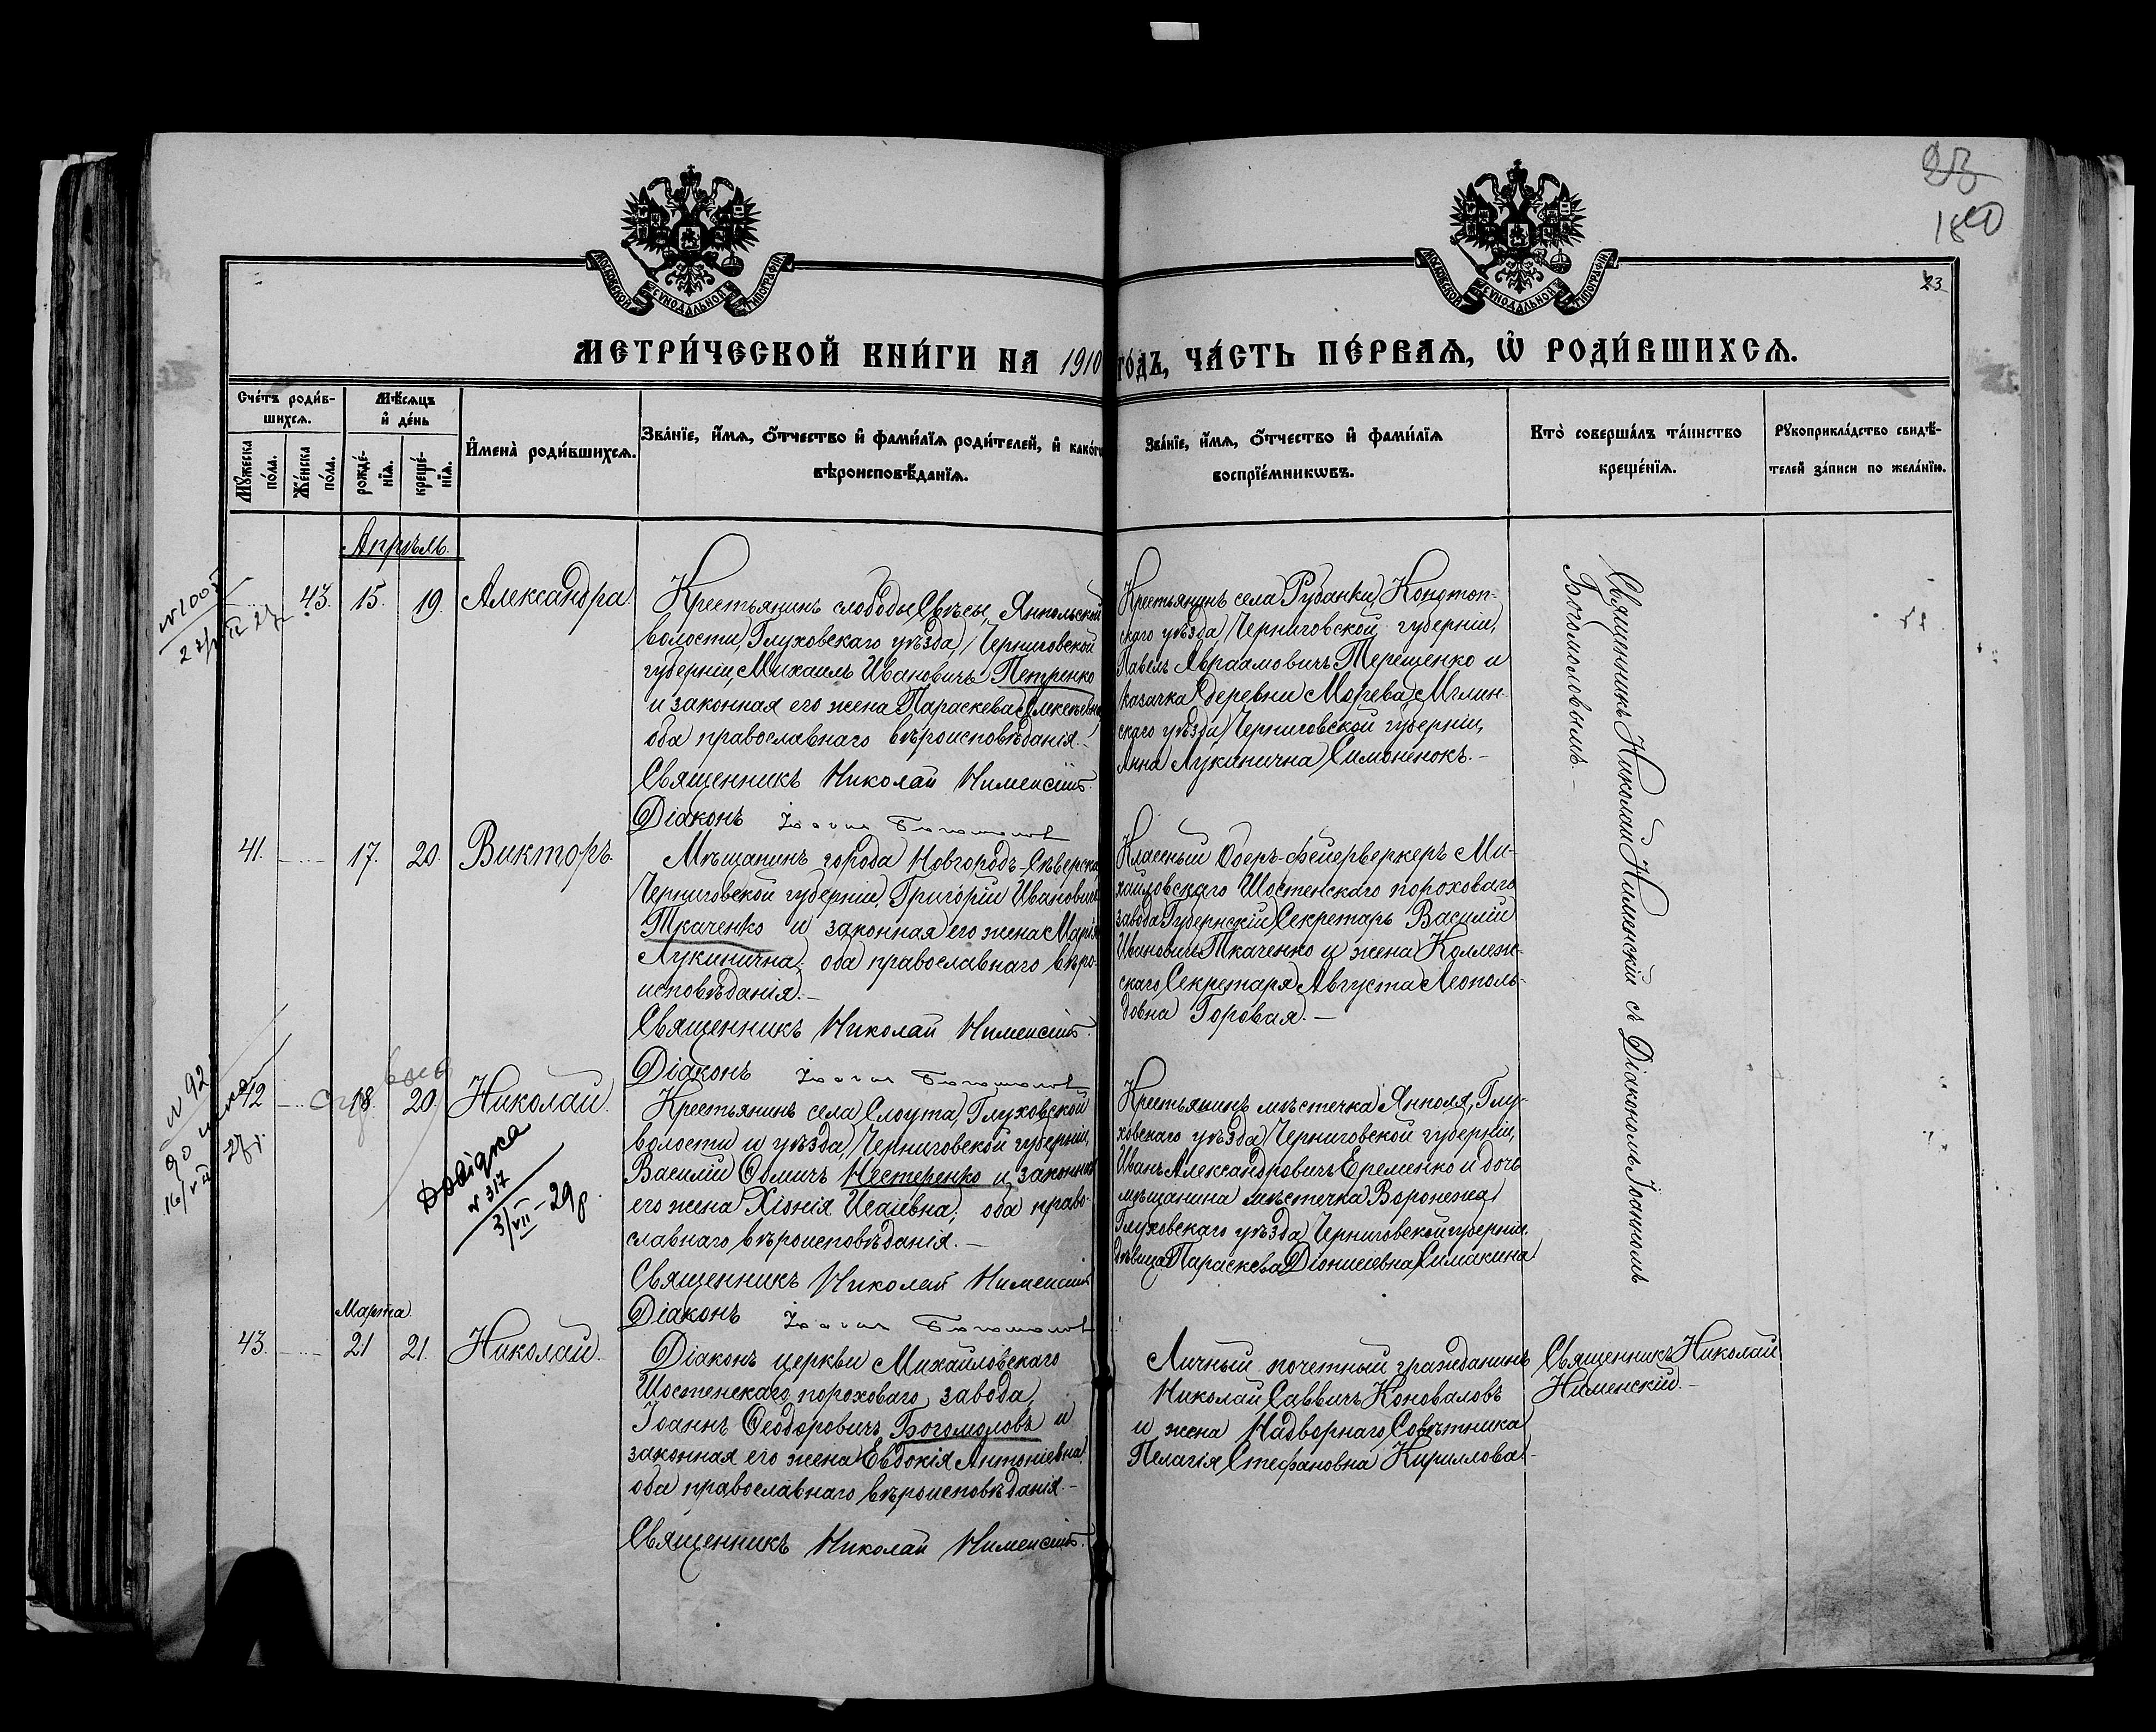 23
180
23
МОСКОВСКОЙ СѴНОДАЛЬНОЙ ТИПОГРАФІИ
МОСКОВСКОЙ СѴНОДАЛЬНОЙ ТИПОГРАФІИ
МЕТРИ́ЧЕСКОЙ КНИ́ГИ НА 1910 ГО́ДЪ, ЧА́СТЬ ПЕ́РВАѦ, Ѡ҆ РОДИ́ВШИХСѦ.
Сче́тъ роди́в-
шихсѧ.
Мꙋ́жеска
по́ла.
Же́нска
по́ла.
Мѣ́сѧцъ
и҆ де́нь
рожде́-
нїѧ.
креще́-
нїѧ.
И҆мена̀ роди́вшихсѧ.
Зва́нїе, и҆́мѧ, ѻ҆́тчество и҆ фами́лїѧ роди́телей, и҆ како́гѡ
вѣроисповѣ́данїѧ.
Зва́нїе, и҆́мѧ, ѻ҆́тчество и҆ фами́лїѧ
воспрїе́мникѡвъ.
Кто̀ соверша́лъ та́инство
креще́нїѧ.
Рꙋкоприкла́дство свидѣ́-
телей за́писи по жела́нїю.
Апрѣль.
43. 15. 19. Александра.
Крестьянинъ слободы Свѣсы, Янпольской
волости, Глуховскаго уѣзда, Черниговской
губерніи, Михаилъ Ивановичъ Петренко
и законная его жена Параскева Алексѣевна,
оба православнаго вѣроисповѣданія.-
Священникъ Николай Нименскій.
Діаконъ Іоаннъ Богомоловъ
Крестьянинъ села Рубанки, Конотоп-
скаго уѣзда, Черниговской губерніи,
Павелъ Авраамовичъ Терещенко и
казачка деревниМорева, Мглин-
скаго уѣзда, Черниговской губерніи,
Анна Лукинична Симоненокъ.-
Священникъ Николай Нименскій съ Діакономъ Іоанномъ
Богомоловымъ.-
41. 17. 20. Викторъ.
Мѣщанинъ города Новгородъ-Сѣверска,
Черниговской губерніи, Григорій Ивановичъ
Ткаченко и законная его жена Марія
Лукинична, оба православнаго вѣро-
исповѣданія.-
Священникъ Николай Нименскій.
Діаконъ Іоаннъ Богомоловъ
Классный Оберъ-фейерверкеръ Ми-
хайловскаго Шостенскаго пороховаго
завода Губернскій Секретарь Василій
Ивановичъ Ткаченко и жена Коллеж-
скаго Секретаря Августа Леополь-
довна Горовая.-
№ 92
42 18. 20. Николай.
Довідка
№ 317
3/VII-29р.
Крестьянинъ села Слоута, Глуховской
волости и уѣзда, Черниговской губерніи,
Василій Ѳомичъ Нестеренко и законная
его жена Хіонія Исаіевна, оба право-
славнаго вѣроисповѣданія.-
Священникъ Николай Нименскій
Діаконъ Іоаннъ Богомоловъ
Крестьянинъ мѣстечка Янполя, Глу-
ховскаго уѣзда, Черниговской губерніи,
Иванъ Александровичъ Еременко и дочь
мѣщанина мѣстечка Воронежа,
Глуховскаго уѣзда, Черниговской губерніи,
дѣвица Параскева Діонисіевна Симакина
Марта
43. 21 21. Николай.
Діаконъ церкви Михайловскаго
Шостенскаго пороховаго завода,
Іоаннъ Ѳеодоровичъ Богомоловъ и
законная его жена Евдокія Антоніевна,
оба православнаго вѣроисповѣданія.-
Священникъ Николай Нименскій.
Личный почетный гражданинъ
Николай Саввичъ Коноваловъ
и жена Надворнаго Совѣтника
Пелагія Стефановна Кириллова.-
Священникъ Николай
Нименскій.-